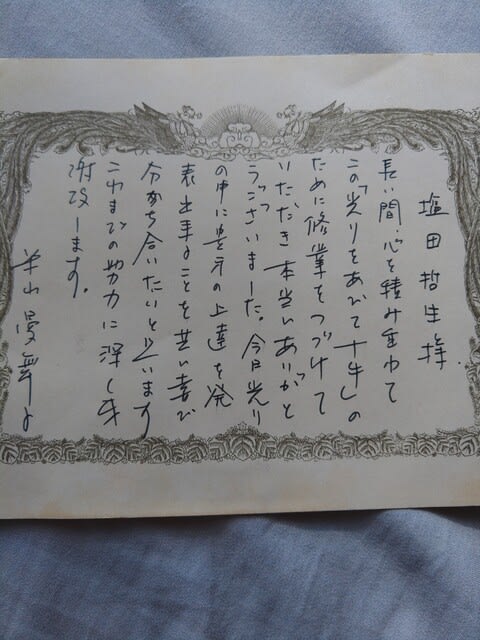 塩田哲生様
長い間、心を積み重ねて
この「光りをあびて十牛」の
ために修業をつづけて
いただき本当にありがと
うございました。今日光り
の中に貴方の上達を発
表出来ることを共に喜び
分かち合いたいと思います
これまでの努力に深く感
謝致します。